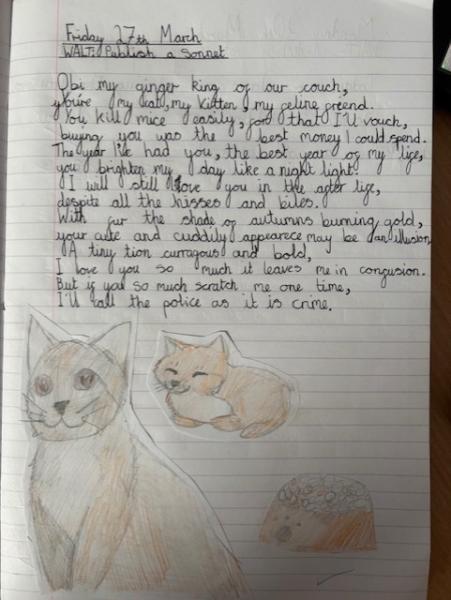 Friday 27th March
WALT: Publish a Sonnet
Obi my ginger king of our couch,
you're my cat, my kitten, my feline freend.
You kill mice easily, for that I'll vouch,
buying you was the best money I could spend.
The year I've had you, the best year of my life,
you brighten my day like a night light.
I will still love you in the after life,
despite all the hisses and bites.
With fur the shade of autumns burning gold,
your cute and cuddily appearece may be an illusion,
A tiny tion curragous and bold,
I love you so much it leaves me in confusion.
But if you so much scratch me one time,
I'll call the police as it is crime.